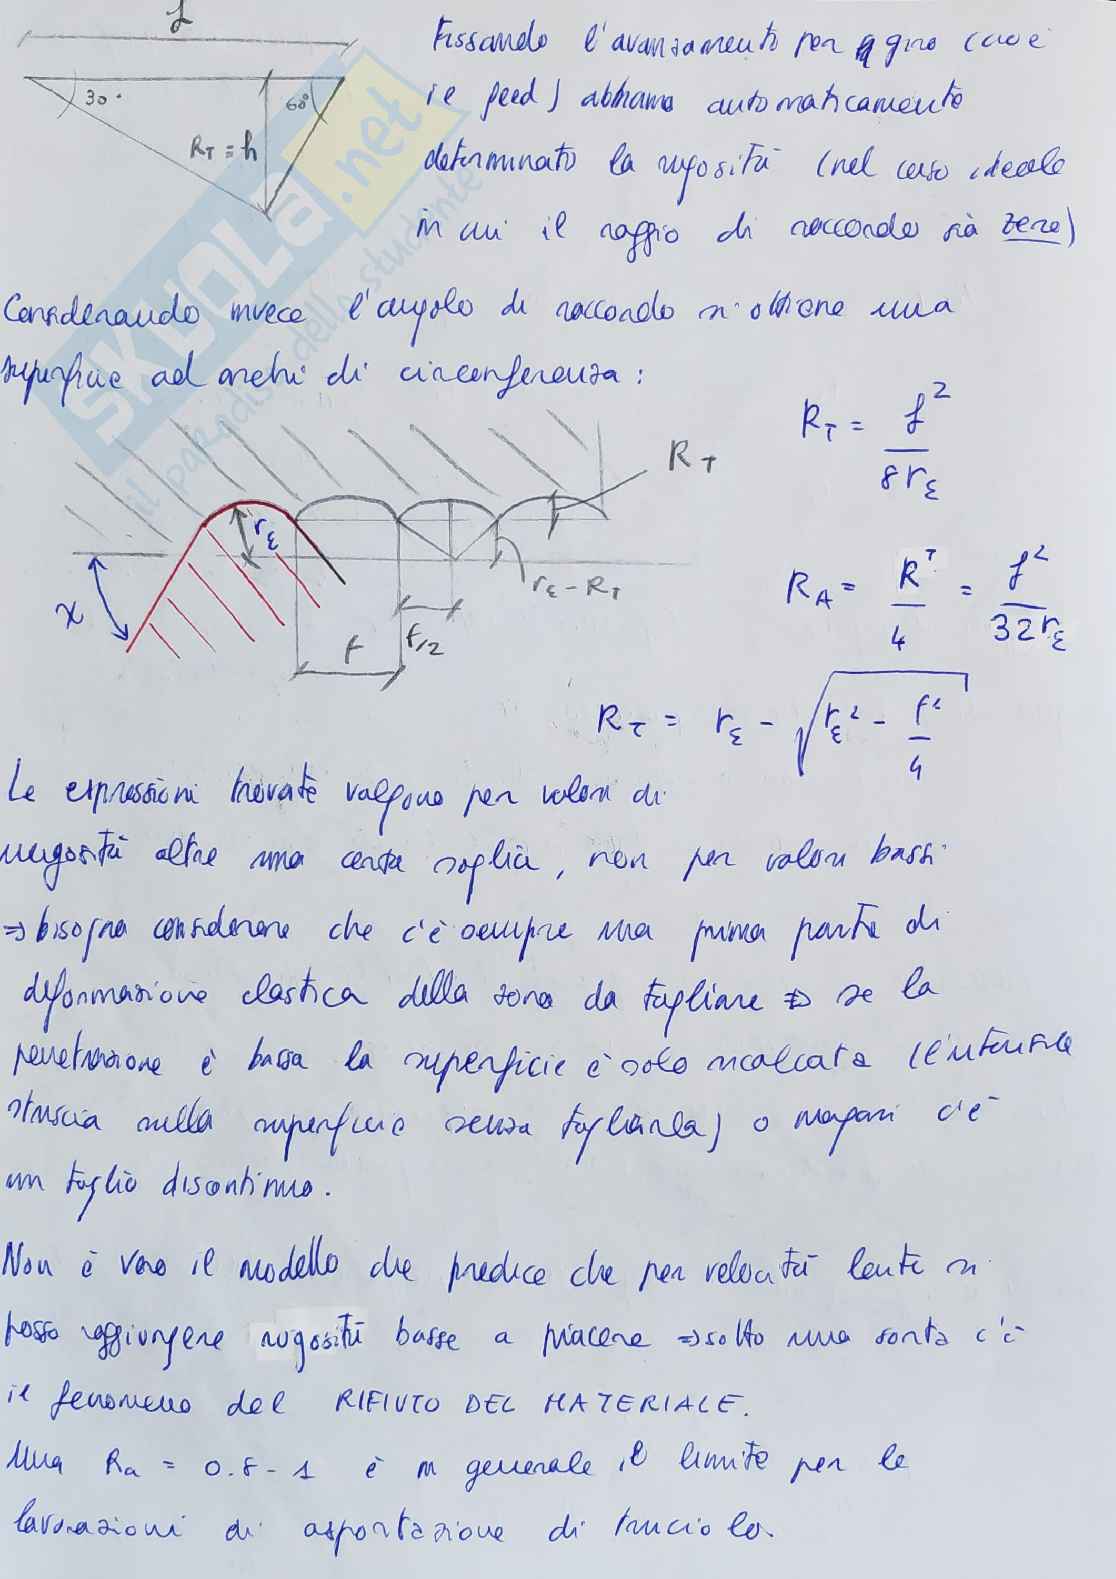 f
30°
60°
RT = h
Fissando l'avanzamento per giro (cioè
il feed) abbiamo automaticamente
determinato la rugosità (nel caso ideale
in cui il raggio di raccordo sia zero)
Considerando invece l'angolo di raccordo si ottiene una
superficie ad archi di circonferenza:
RT = f² / 8rε
RT
rε
rε - RT
x
f/2
f
RA = RT / 4 = f² / 32rε
RT = rε - √(rε² - f²/4)
Le espressioni trovate valgono per valori di
rugosità oltre una certa soglia, non per valori bassi
⇒ bisogna considerare che c'è sempre una prima parte di
deformazione elastica della zona da tagliare ⇒ se la
penetrazione è bassa la superficie è solo ricalcata (l'utensile
struscia sulla superficie senza tagliarla) o magari c'è
un taglio discontinuo.
Non è vero il modello che predice che per velocità lente si
possa raggiungere rugosità basse a piacere ⇒ sotto una certa c'è
il fenomeno del RIFIUTO DEL MATERIALE.
Una Ra = 0.8 - 1 è in generale il limite per le
lavorazioni di asportazione di truciolo.
SKUOLA.net
il paradiso dello studente